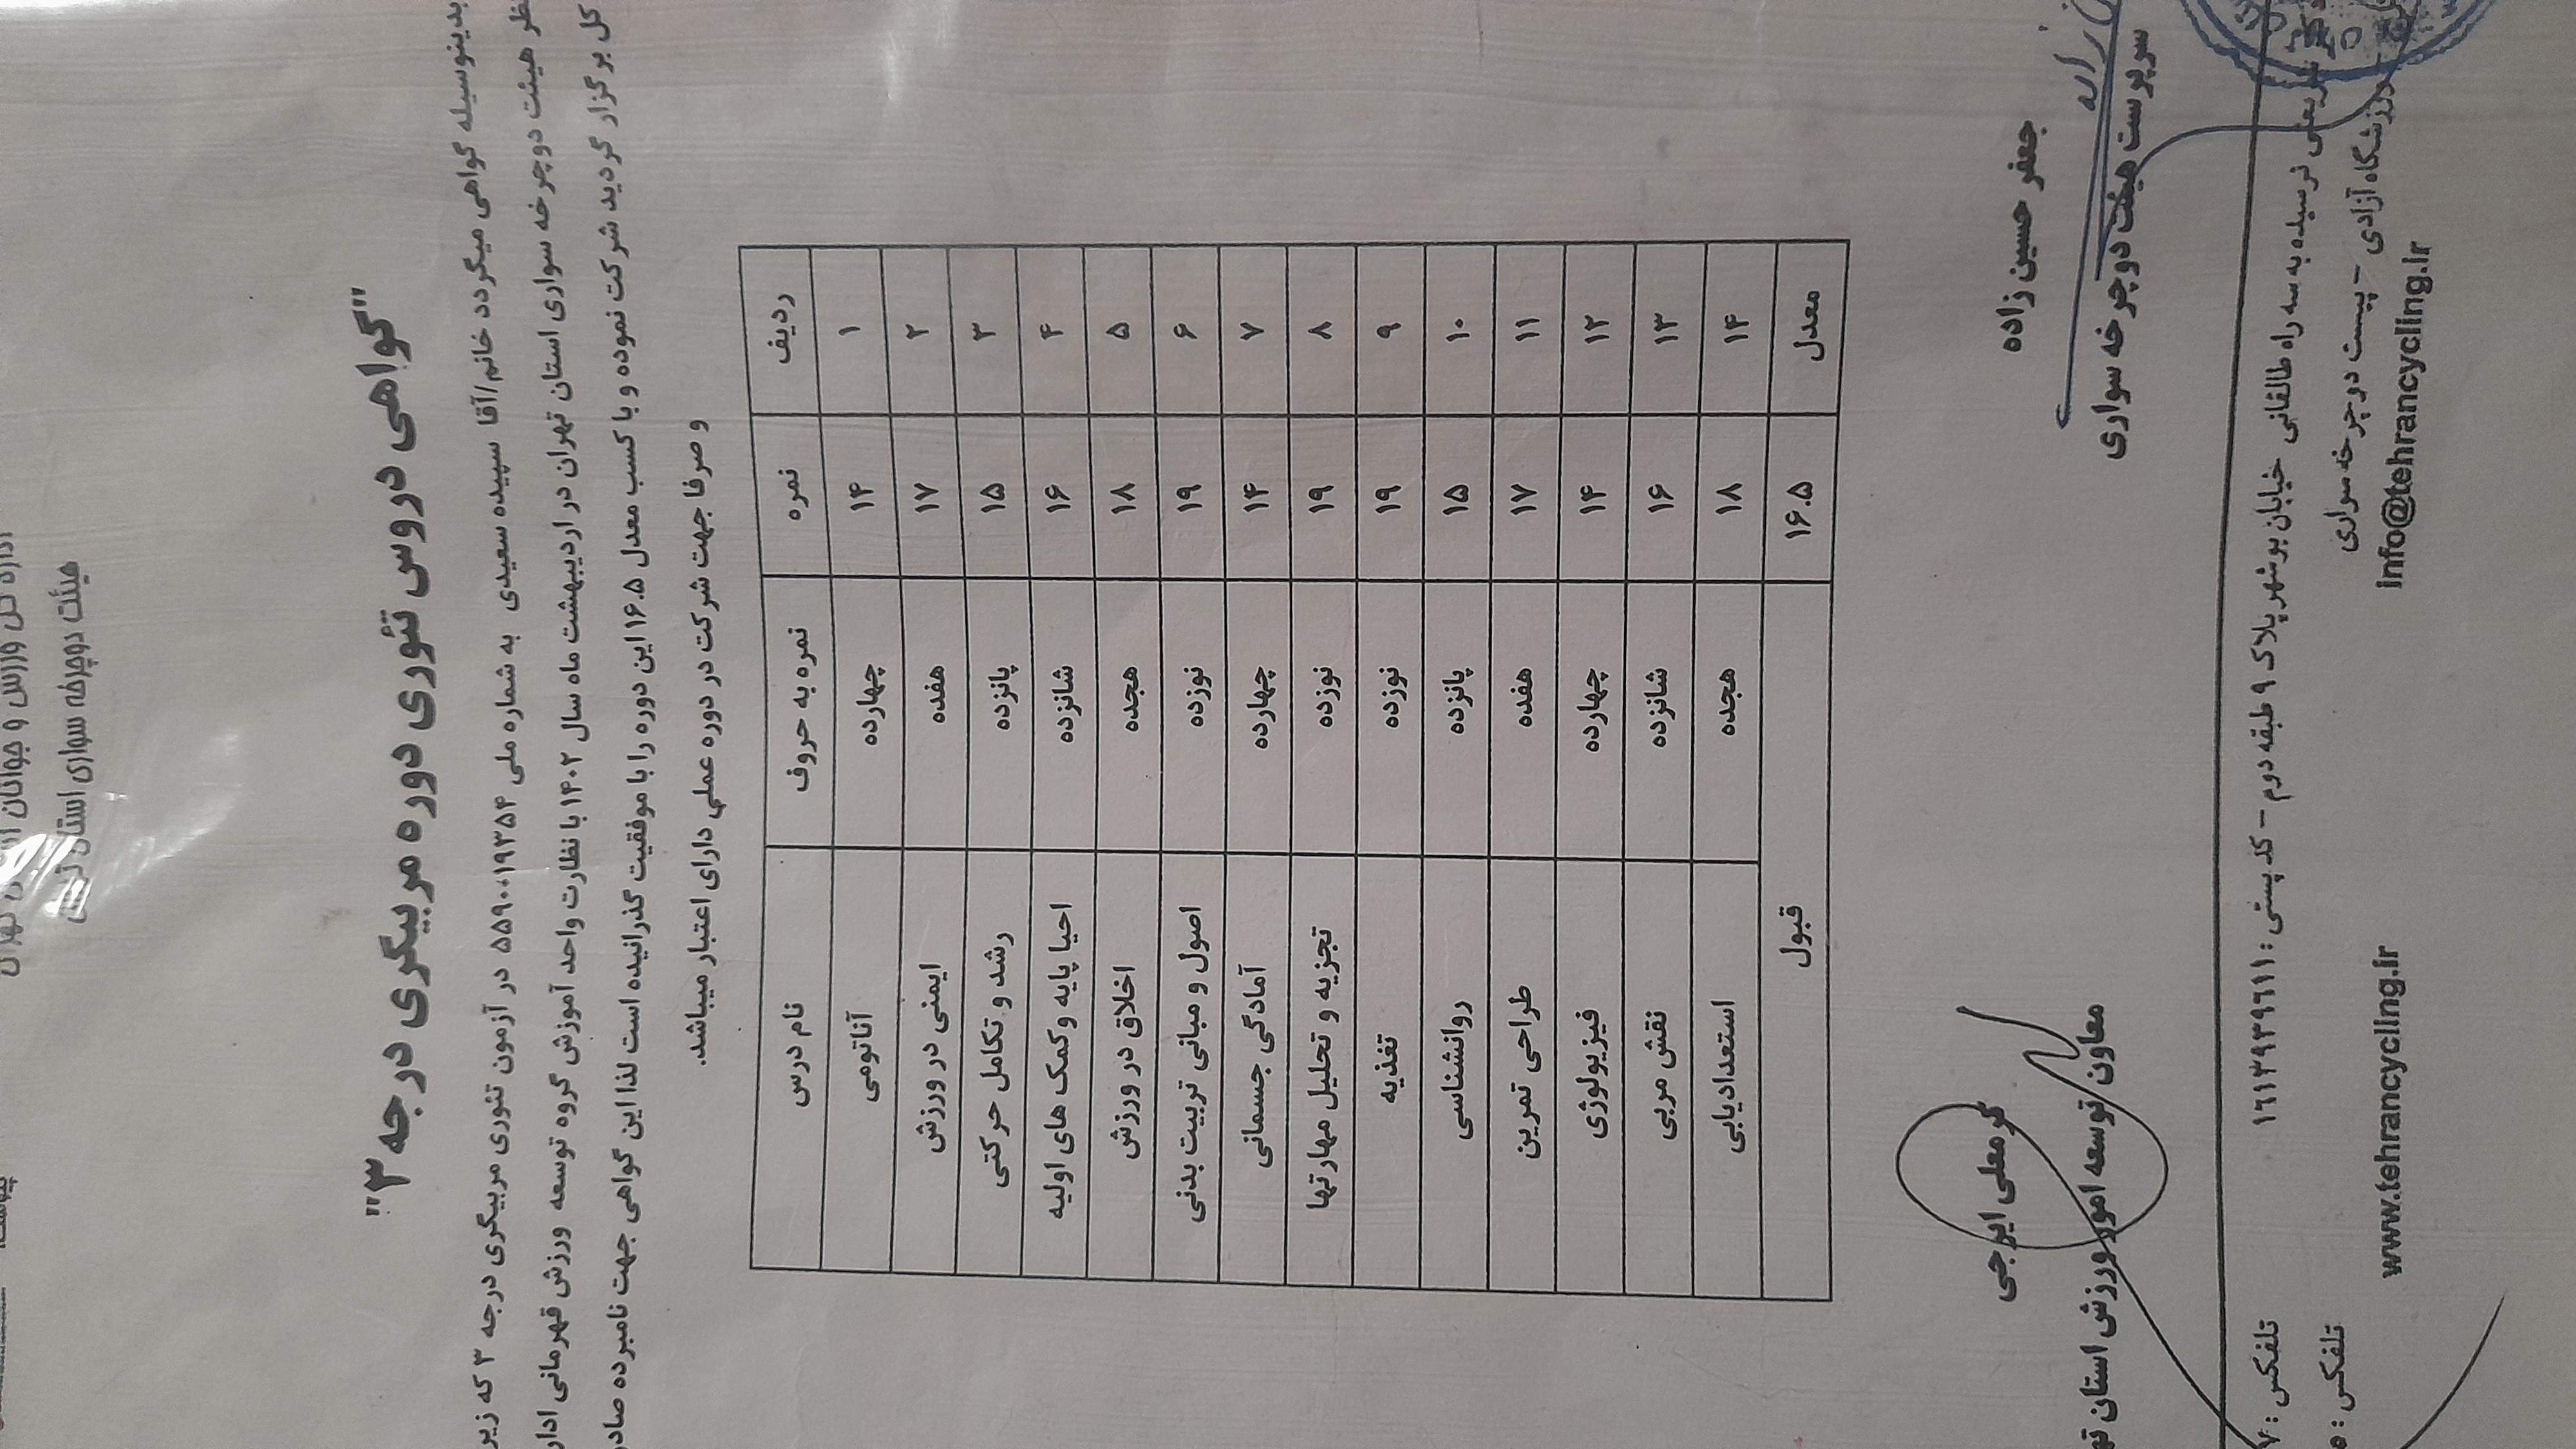 هیئت دوچرخه سواری استان
"گواهی دروس تئوری دوره مربیگری درجه ۳"
بدینوسیله گواهی میگردد خانم/آقا سپیده سعیدی به شماره ملی ۵۵۹۰۰۱۹۳۵۴ در آزمون تئوری مربیگری درجه ۳ که زیر
نظر هیئت دوچرخه سواری استان تهران در اردیبهشت ماه سال ۱۴۰۲ با نظارت واحد آموزش گروه توسعه ورزش قهرمانی
کل برگزار گردید شرکت نموده و با کسب معدل ۱۶.۵ این دوره را با موفقیت گذرانیده است لذا این گواهی جهت نامبرده صادر
و صرفا جهت شرکت در دوره عملی دارای اعتبار میباشد.
ردیف نمره نمره به حروف نام درس
۱ ۱۴ چهارده آناتومی
۲ ۱۷ هفده ایمنی در ورزش
۳ ۱۵ پانزده رشد و تکامل حرکتی
۴ ۱۶ شانزده احیا پایه و کمک های اولیه
۵ ۱۸ هجده اخلاق در ورزش
۶ ۱۹ نوزده اصول و مبانی تربیت بدنی
۷ ۱۴ چهارده آمادگی جسمانی
۸ ۱۹ نوزده تجزیه و تحلیل مهارتها
۹ ۱۹ نوزده تغذیه
۱۰ ۱۵ پانزده روانشناسی
۱۱ ۱۷ هفده طراحی تمرین
۱۲ ۱۴ چهارده فیزیولوژی
۱۳ ۱۶ شانزده نقش مربی
۱۴ ۱۸ هجده استعدادیابی
معدل ۱۶.۵ قبول
جعفر حسین زاده کرمعلی ایرجی
سرپرست هیئت دوچرخه سواری معاون توسعه امور ورزش استان
نرسیده به سه راه طالقانی خیابان بوشهر پلاک ۹ طبقه دوم - کد پستی : ۱۶۱۱۳۹۳۹۶۱۱ تلفکس :
ورزشگاه آزادی - پیست دوچرخه سواری تلفکس :
info@tehrancycling.ir www.tehrancycling.ir